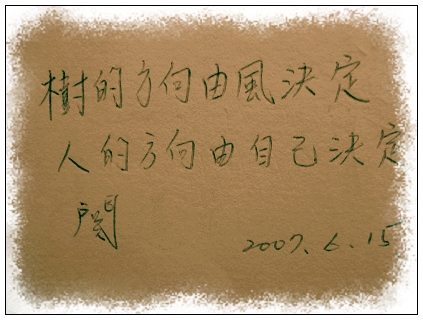 樹的方向由風決定
人的方向由自己決定
2007. 6. 15